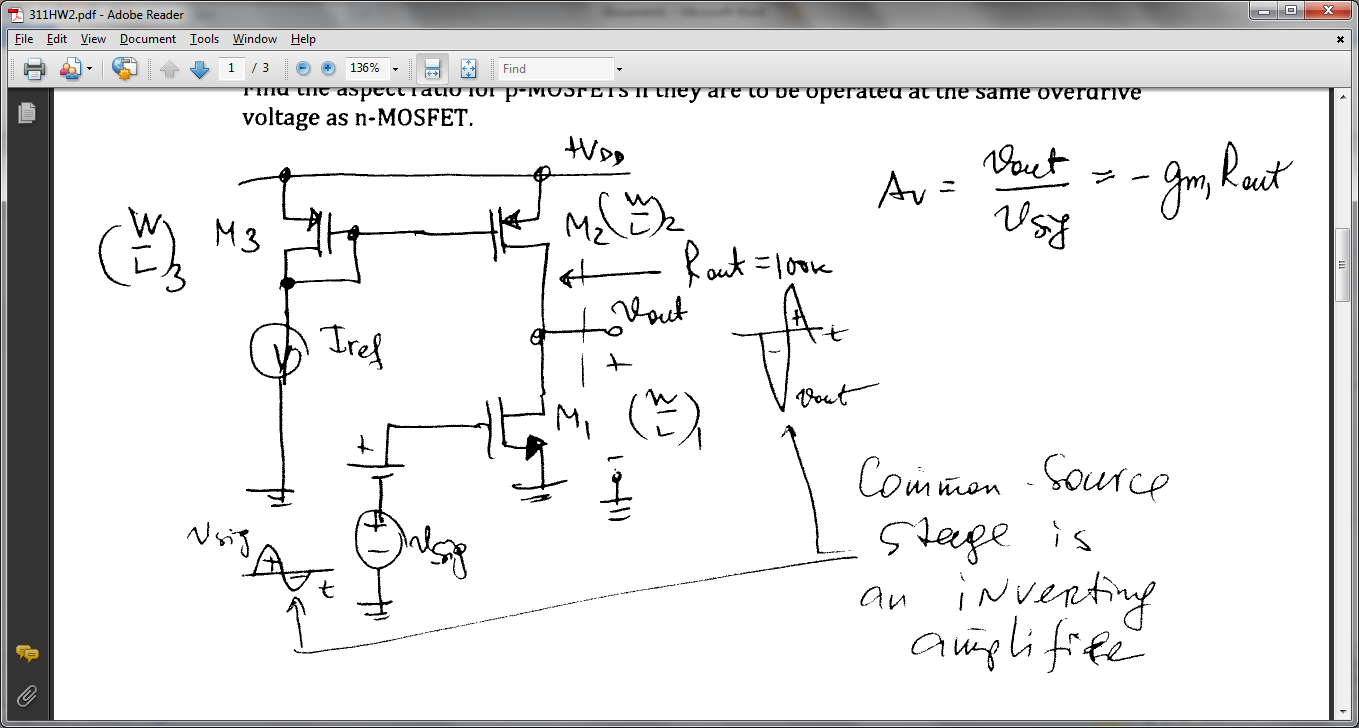 311HW2.pdf - Adobe Reader
File Edit View Document Tools Window Help
1 / 3 136% Find
Find the aspect ratio for p-MOSFETs if they are to be operated at the same overdrive
voltage as n-MOSFET.
+VDD
Av = Vout / Vsig = - gm1 Rout
(W/L)3 M3 M2 (W/L)2
Rout = 100k
Vout
Iref
+
+ t
-
Vout
M1 (W/L)1
+
-
Common-Source
stage is
an inverting
amplifier
Vsig
+ t
+
-
Vsig